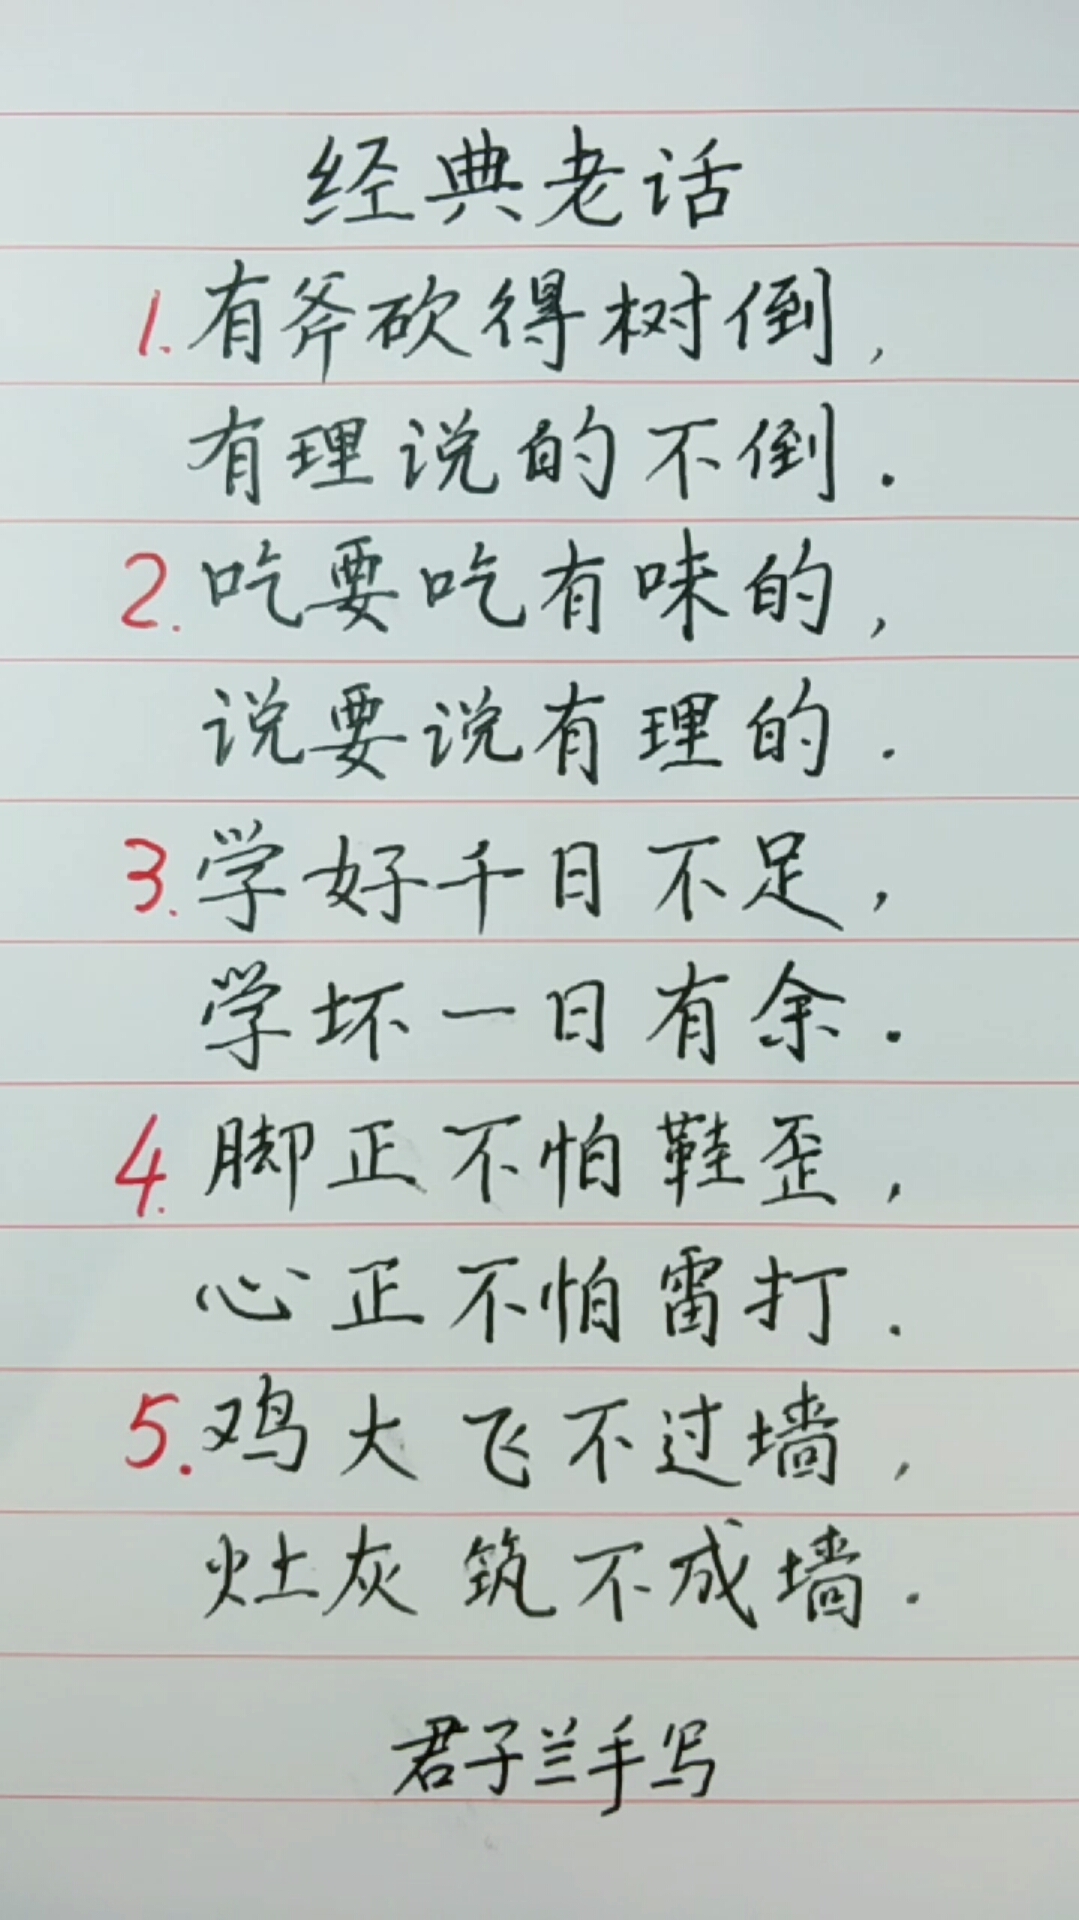 经典老话
1.有斧砍得树倒,
有理说的不倒.
2.吃要吃有味的,
说要说有理的.
3.学好千日不足,
学坏一日有余.
4.脚正不怕鞋歪,
心正不怕雷打.
5.鸡大飞不过墙,
灶灰筑不成墙.
君子兰手写